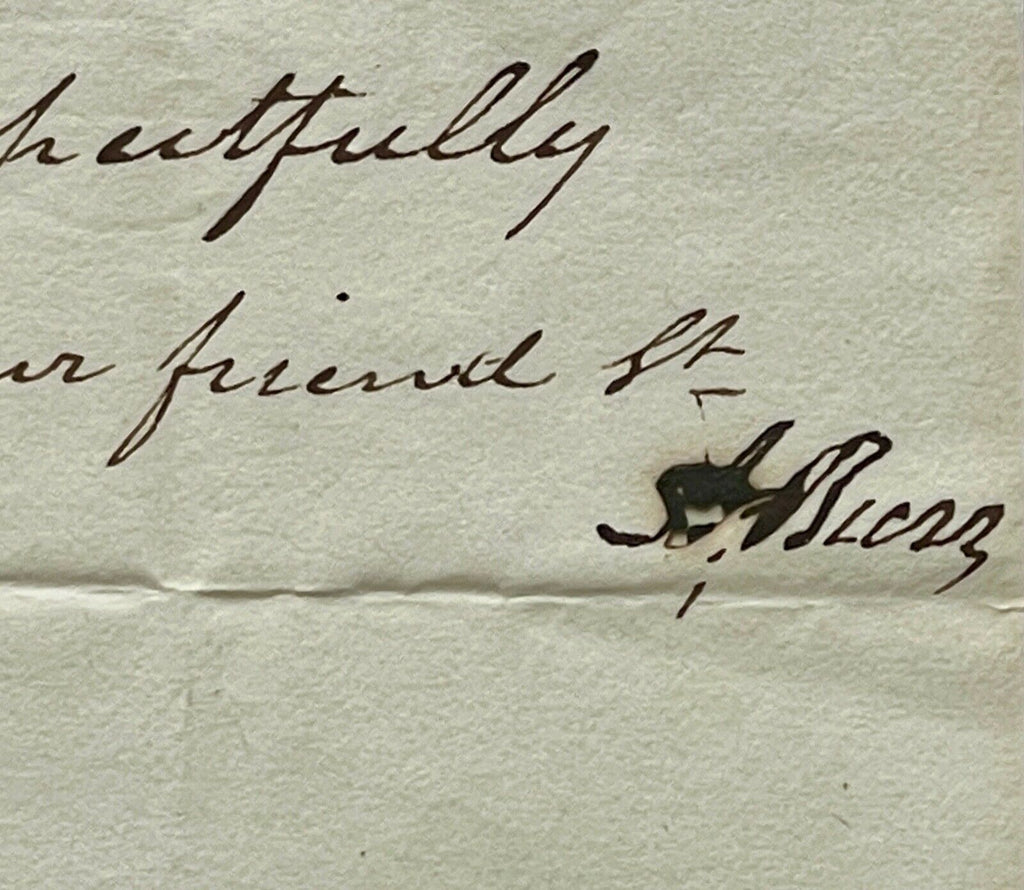 pectfully
ur friend St
A. Burr